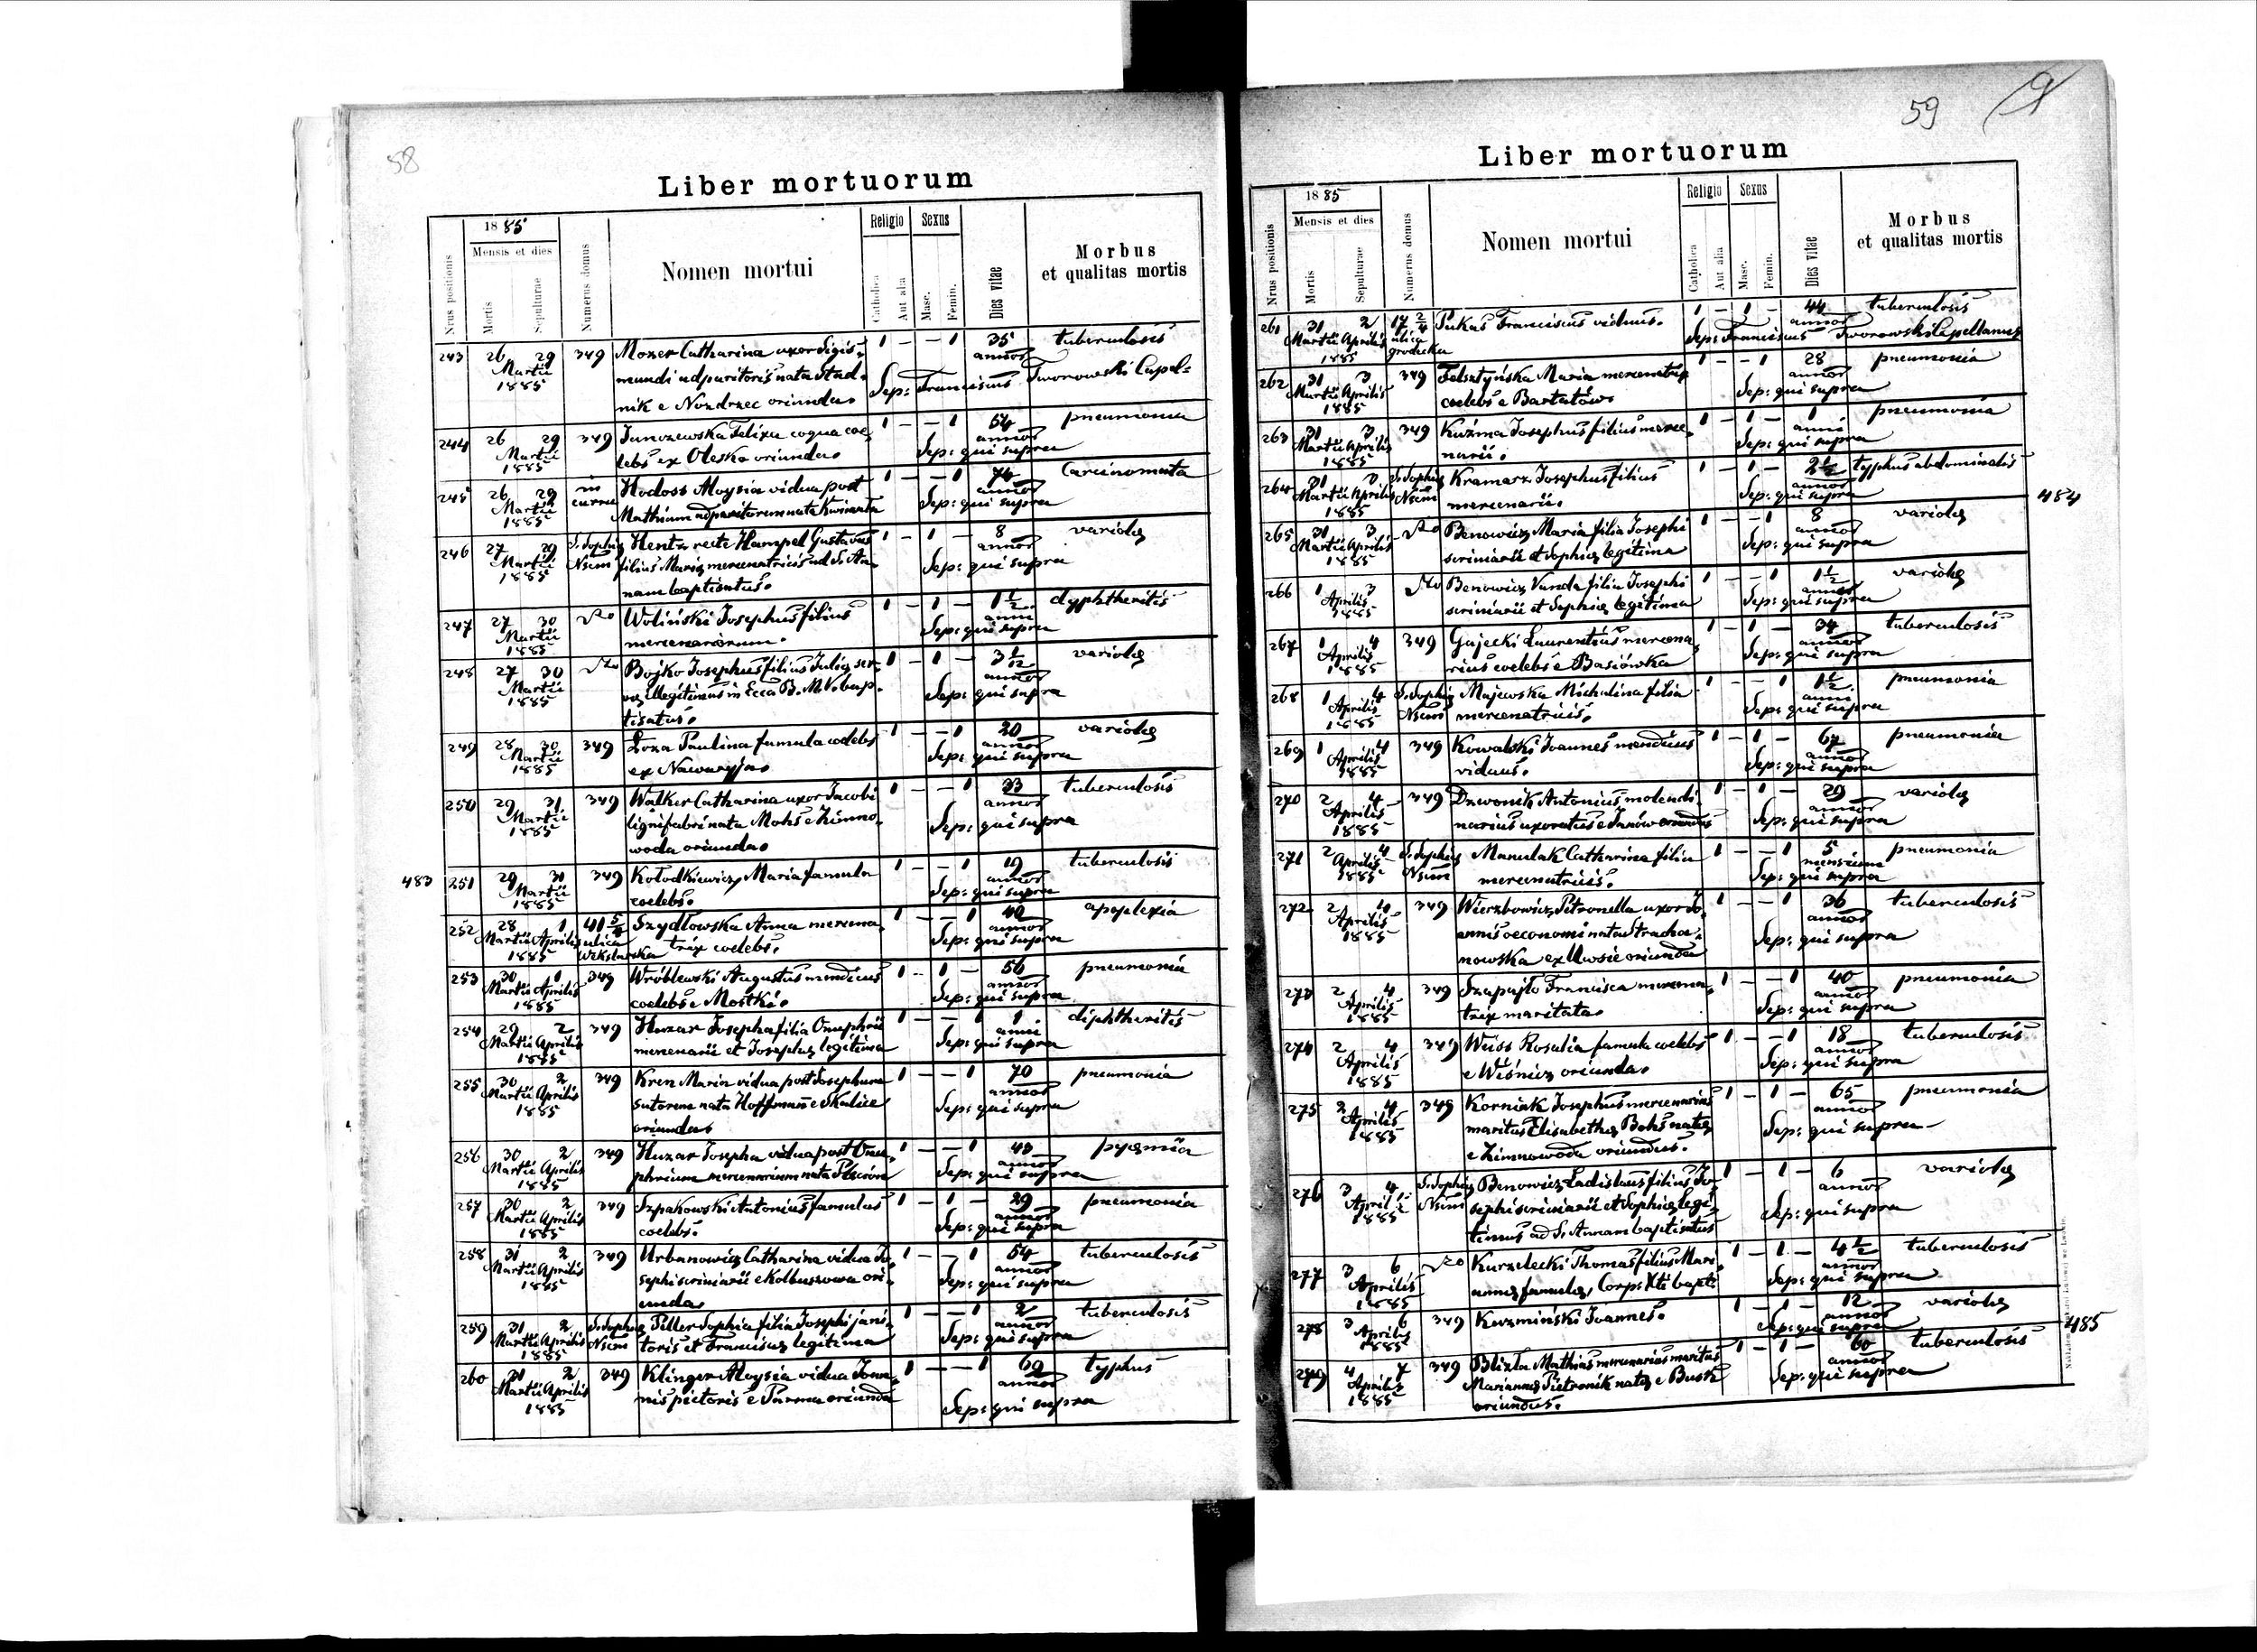 58
Liber mortuorum
1885
Mensis et dies
Nrus positionis
Mortis
Sepulturae
Numerus domus
Nomen mortui
Religio
Catholica
Aut alia
Sexus
Masc.
Femin.
Dies vitae
Morbus
et qualitas mortis
243 26 29 349 Mozer Catharina uxor Sigis- 1 – – 1 35 tuberculosis
Martii mundi adparitoris nata Stad- annor
1885 nik e Nozdrzec oriunda. Sep: Franciscus Tworowski Capel=
244 26 29 349 Janozewska Felixa coqua coe- 1 – – 1 54 pneumonia
Martii lebs ex Olesko oriunda. annor
1885 Sep: qui supra
245 26 29 in Hodoss Aloysia vidua post 1 – – 1 74 Carcinomata
Martii curru Mathiam adparitorem nata annor
1885 Sep: qui supra
246 27 29 S. Sophię Hentz recte Hampel Gustavus 1 – 1 – 8 variolę
Martii Nsem filius Marię mercenatricis ad S. An- annor
1885 nam baptisatus. Sep: qui supra
247 27 30 Woliński Josephus filius 1 – 1 – 1 1/2 dyphtheritis
Martii mercenariorum. anni
1885 Sep: qui supra
248 27 30 Bojko Josephus filius Julię ser- 1 – 1 – 3 1/12 variolę
Martii vę illegitimus in Ecca B. M. V. bap- annor
1885 tisatus. Sep: qui supra
249 28 30 349 Łoza Paulina famula coelebs 1 – – 1 20 variolę
Martii ex Nawaryja. annor
1885 Sep: qui supra
250 29 31 349 Walker Catharina uxor Jacobi 1 – – 1 33 tuberculosis
Martii lignifabri nata Mohs e Zimno- annor
1885 woda oriunda. Sep: qui supra
483 251 29 31 349 Kołodkiewicz Maria famula 1 – – 1 19 tuberculosis
Martii coelebs. annor
1885 Sep: qui supra
252 28 1 41 5/4 Szydłowska Anna mercena- 1 – – 1 42 apoplexia
Martii Aprilis ulica trix coelebs. annor
1885 Wekslarska Sep: qui supra
253 30 1 349 Wróblewski Augustus mendicus 1 – 1 – 56 pneumonia
Martii Aprilis coelebs e Mostki. annor
1885 Sep: qui supra
254 29 2 349 Huzar Josepha filia Onuphrii 1 – – 1 1 diphtheritis
Martii Aprilis mercenarii et Josephę legitima anni
1885 Sep: qui supra
255 30 2 349 Kren Maria vidua post Josephum 1 – – 1 70 pneumonia
Martii Aprilis sutorem nata Hoffmann e Skalice annor
1885 oriunda. Sep: qui supra
256 30 2 349 Huzar Josepha vidua post Onu- 1 – – 1 43 pyęmia
Martii Aprilis phrium mercenarium nata annor
1885 Sep: qui supra
257 30 2 349 Szpakowski Antonius famulus 1 – 1 – 29 pneumonia
Martii Aprilis coelebs. annor
1885 Sep: qui supra
258 31 2 349 Urbanowicz Catharina vidua Jo- 1 – – 1 54 tuberculosis
Martii Aprilis sephi scriniarii e Kolbuszowa ori- annor
1885 unda. Sep: qui supra
259 31 2 S. Sophię Piller Sophia filia Josephi jani- 1 – – 1 2 tuberculosis
Martii Aprilis Nsem toris et Franciscę legitima annor
1885 Sep: qui supra
260 31 2 349 Klinger Aloysia vidua Joan- 1 – – 1 69 typhus
Martii Aprilis nis pictoris e Parma oriunda annor
1885 Sep: qui supra
59
Liber mortuorum
1885
Mensis et dies
Nrus positionis
Mortis
Sepulturae
Numerus domus
Nomen mortui
Religio
Catholica
Aut alia
Sexus
Masc.
Femin.
Dies vitae
Morbus
et qualitas mortis
261 31 2 17 2/4 Pukas Franciscus viduus. 1 – 1 – 44 tuberculosis
Martii Aprilis ulica annor
1885 grodecka Sep: Franciscus Tworowski Capellanus
262 31 3 349 Felsztyńska Maria mercenatrix 1 – – 1 28 pneumonia
Martii Aprilis coelebs e Bartatów. annor
1885 Sep: qui supra
263 31 3 349 Kuźma Josephus filius merce- 1 – 1 – 1 pneumonia
Martii Aprilis narii. anni
1885 Sep: qui supra
264 31 3 S. Sophię Kramarz Josephus filius 1 – 1 – 2 1/2 typhus abdominalis
Martii Aprilis Nsem mercenarii. annor
1885 Sep: qui supra
484
265 31 3 Benowicz Maria filia Josephi 1 – – 1 8 variolę
Martii Aprilis scriniarii et Sophię legitima annor
1885 Sep: qui supra
266 1 3 Benowicz Vanda filia Josephi 1 – – 1 1 1/2 variolę
Aprilis scriniarii et Sophię legitima
1885 Sep: qui supra
267 1 4 349 Gajecki Laurentius mercena- 1 – 1 – 34 tuberculosis
Aprilis rius coelebs e Basiówka annor
1885 Sep: qui supra
268 1 4 S. Sophię Majewska Michalina filia 1 – – 1 1 1/2 pneumonia
Aprilis Nsem mercenatricis. anni
1885 Sep: qui supra
269 1 4 349 Kowalski Joannes mendicus 1 – 1 – 67 pneumonia
Aprilis viduus. annor
1885 Sep: qui supra
270 2 4 349 Dzwonik Antonius molendi- 1 – 1 – 29 variolę
Aprilis narius uxoratus e Janów oriundus annor
1885 Sep: qui supra
271 2 4 S. Sophię Manulak Catharina filia 1 – – 1 5 pneumonia
Aprilis Nsem mercenatricis. mensium
1885 Sep: qui supra
272 2 4 349 Wierzbowicz Petronella uxor Jo- 1 – – 1 36 tuberculosis
Aprilis annis oeconomi nata Stracha- annor
1885 nowska ex Uwsie oriunda Sep: qui supra
273 2 4 349 Szapajło Francisca mercena- 1 – – 1 40 pneumonia
Aprilis trix maritata. annor
1885 Sep: qui supra
274 2 4 349 Weiss Rosalia famula coelebs 1 – – 1 18 tuberculosis
Aprilis e Wiśnicz oriunda. annor
1885 Sep: qui supra
275 2 4 349 Korniak Josephus mercenarius 1 – 1 – 65 pneumonia
Aprilis maritus Elisabethę Bohs natę annor
1885 e Zimnowoda oriundus. Sep: qui supra
276 3 4 S. Sophię Benowicz Ladislaus filius Jo- 1 – 1 – 6 variolę
Aprilis Nsem sephi scriniarii et Sophię legi- annor
1885 timus ad S. Annam baptisatus Sep: qui supra
277 3 6 Kurzelecki Thomas filius Mari- 1 – 1 – 4 1/2 tuberculosis
Aprilis annę famulę, Corp: Xti bapt: annor
1885 Sep: qui supra
278 3 6 349 Kuzmiński Joannes. 1 – 1 – 12 variolę
Aprilis annor
1885 Sep: qui supra
485
279 4 7 349 Blizla Mathias mercenarius maritus 1 – 1 – 60 tuberculosis
Aprilis Mariannę Pietronik natę e Busk annor
1885 oriundus. Sep: qui supra